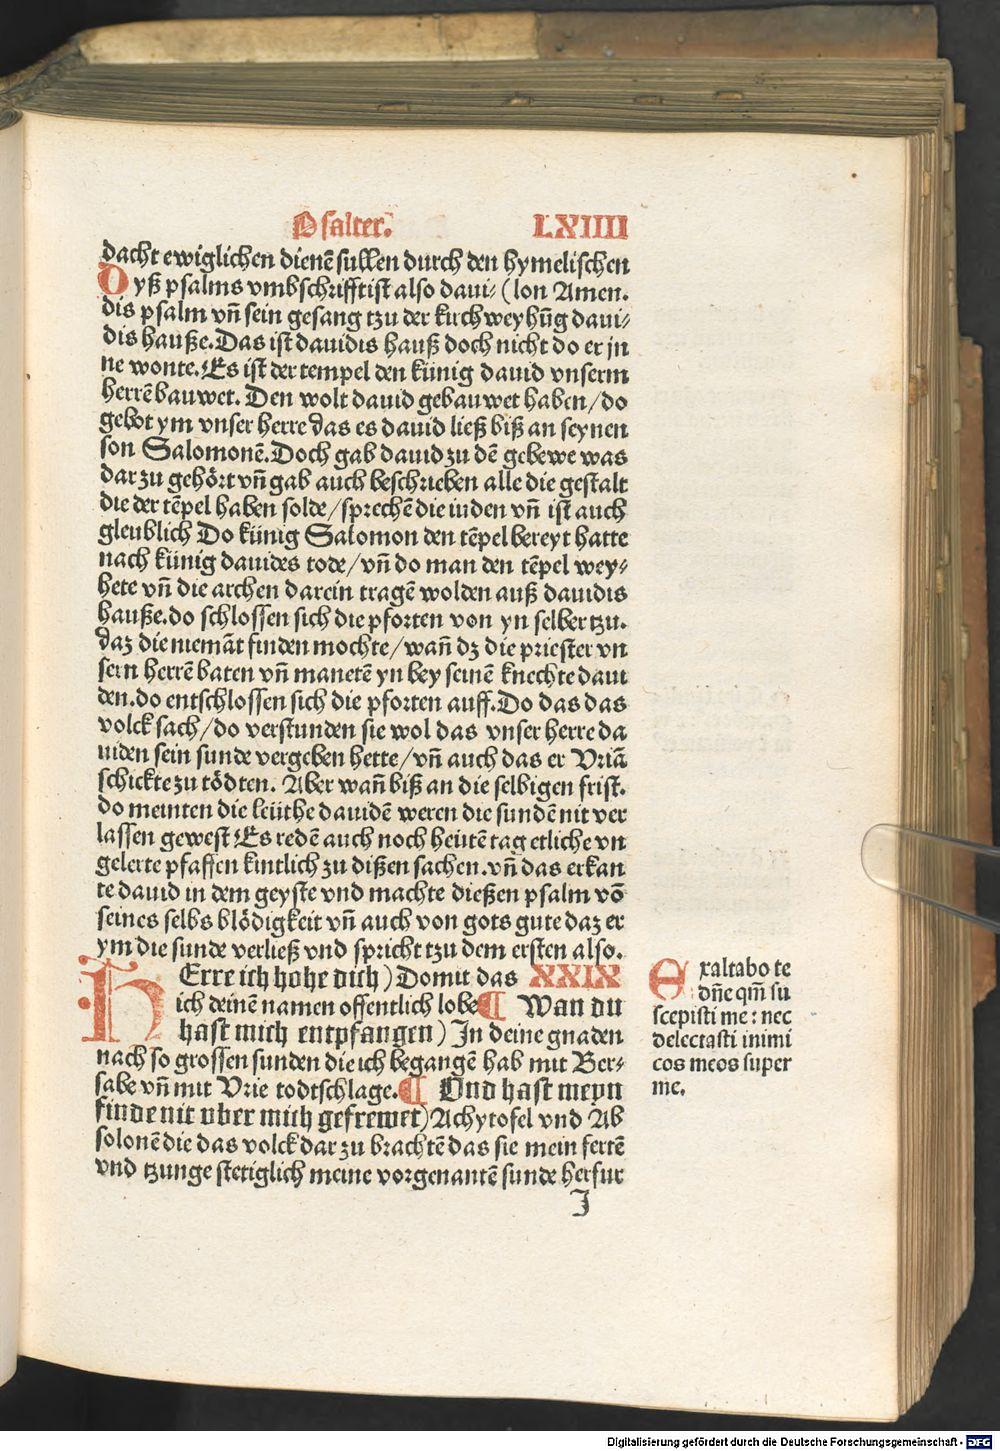 Psalter. LXIIII
dacht ewiglichen dienē sullen durch den hymelischen
Dyß psalms vmbschrifft ist also daui⸗ (lon Amen.
dis psalm vñ sein gesang tzu der kirchweyhūg daui⸗
dis hauße. Das ist dauidis hauß doch nicht do er jn
ne wonte. Es ist der tempel den künig dauid vnserm
herrē bauwet. Den wolt dauid gebauwet haben/ do
gebot ym vnser herre das es dauid ließ biß an seynen
son Salomonē. Doch gab dauid zu dē gebewe was
dar zu gehört vñ gab auch beschrieben alle die gestalt
die der tēpel haben solde/ sprechē die iuden vñ ist auch
gleublich Do künig Salomon den tēpel bereyt hatte
nach künig dauides tode/ vñ do man den tēpel wey⸗
hete vñ die archen darein tragē wolden auß dauidis
hauße. do schlossen sich die pforten von yn selber tzu.
daz die niemāt finden mochte/ wañ dz die priester vn
sern herrē baten vñ manetē yn bey seinē knechte daui
den. do entschlossen sich die pforten auff. Do das das
volck sach/ do verstunden sie wol das vnser herre da
uiden sein sunde vergeben hette/ vñ auch das er Vriā
schickte zu tödten. Aber wañ biß an die selbigen frist.
do meinten die leüthe dauidē weren die sundē nit ver
lassen gewest Es redē auch noch heütē tag etliche vn
gelerte pfaffen kintlich zu dißen sachen. vñ das erkan
te dauid in dem geyste vnd machte dießen psalm vō
seines selbs blödigkeit vñ auch von gots gute daz er
ym die sunde verließ vnd spricht tzu dem ersten also.
HErre ich hohe dich) Domit das XXIX
ich deinē namen offentlich lobe ¶ Wan du
hast mich entpfangen) In deine gnaden
nach so grossen sunden die ich begangē hab mit Ber⸗
sabe vñ mit Vrie todtschlage. ¶ Vnd hast meyn
finde nit vber mich gefrewet) Achytofel vnd Ab
solonē die das volck dar zu brachtē das sie mein fertē
vnd tzunge stetiglich meine vorgenantē sunde herfur
I
Exaltabo te
dñe qm̄ su
scepisti me: nec
delectasti inimi
cos meos super
me.
Digitalisierung gefördert durch die Deutsche Forschungsgemeinschaft - DFG